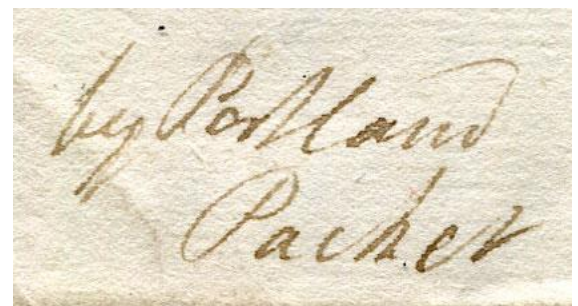 by Portland
Packet